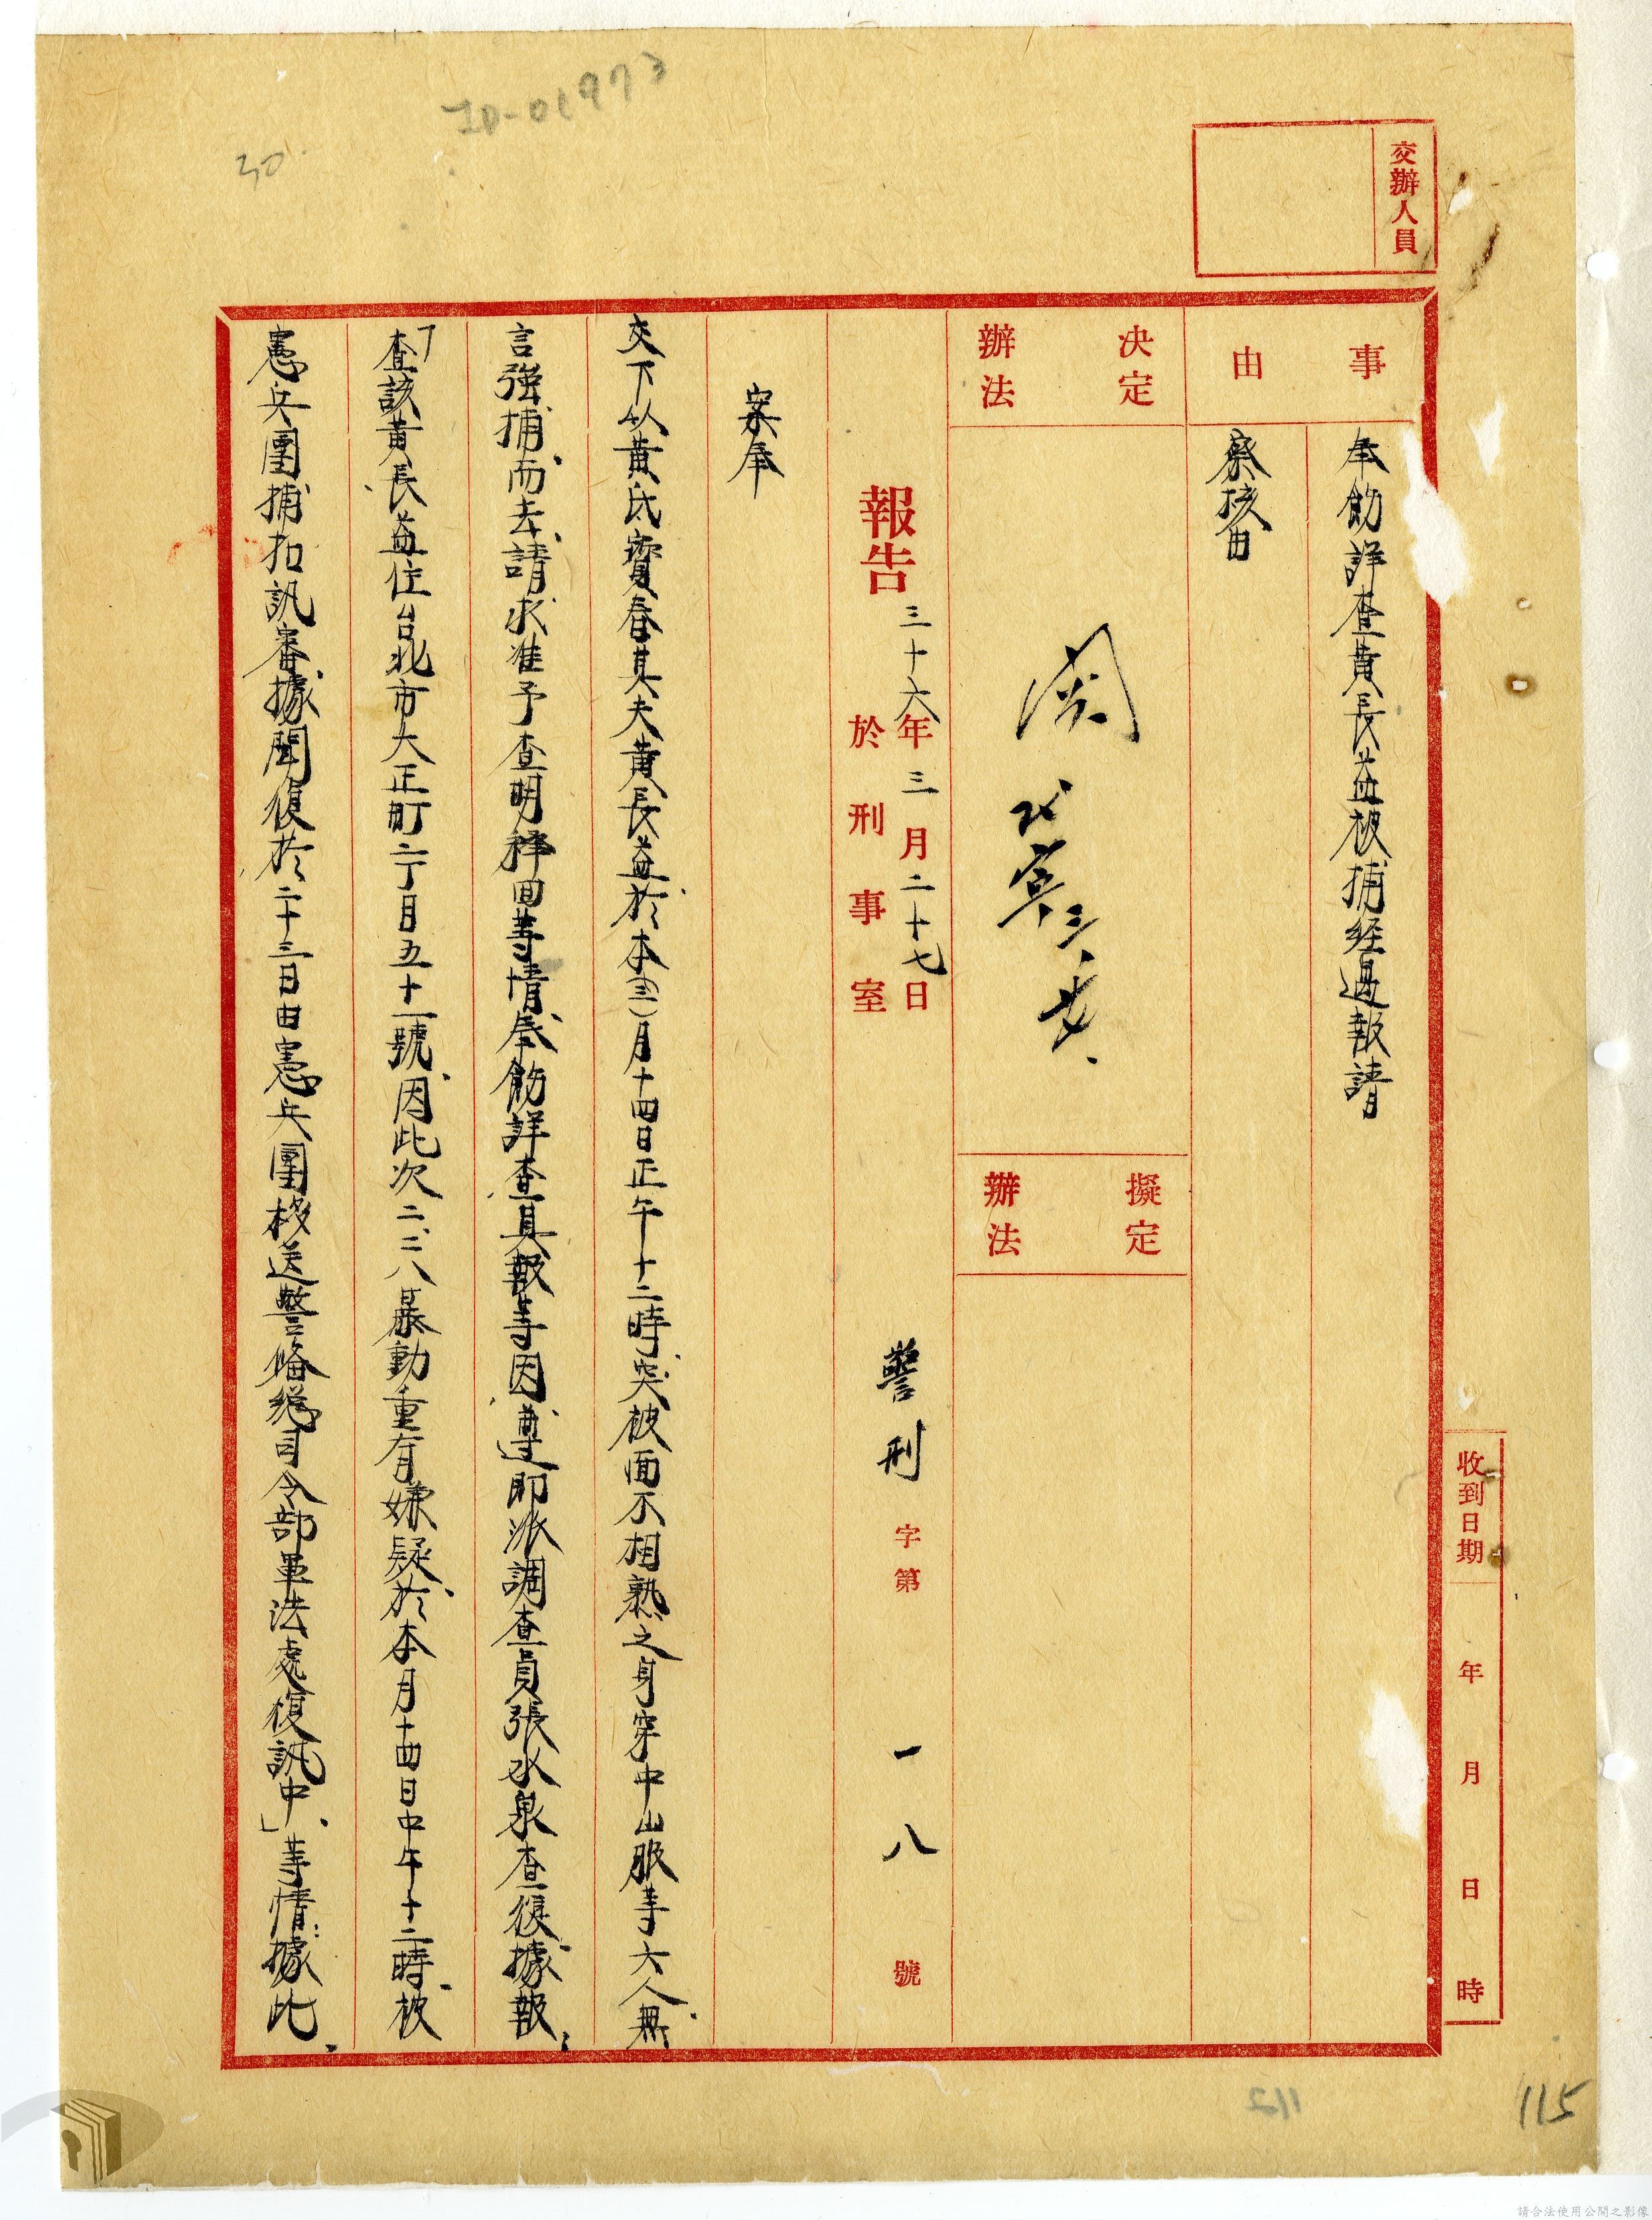 ID-01973
30
交辦人員
事由
奉飭詳查黃長益被捕經過報請
察核由
決定辦法
閱
擬定辦法
報告
三十六年三月二十七日
於刑事室
警刑字第一八號
案奉
交下以黃氏寶春其夫黃長益於本(三)月十四日正午十二時突被面不相熟之身穿中山服等六人無
言強捕而去請求准予查明釋回等情奉飭詳查具報等因遵即派調查員張水泉查復據報:
「查該黃長益住台北市大正町二丁目五十一號因此次二、二八暴動重有嫌疑於本月十四日中午十二時被
憲兵團捕扣訊審據聞復於二十三日由憲兵團移送警備總司令部軍法處復訊中」等情:據此、
收到日期 年 月 日 時
112
115
請合法使用公開之影像